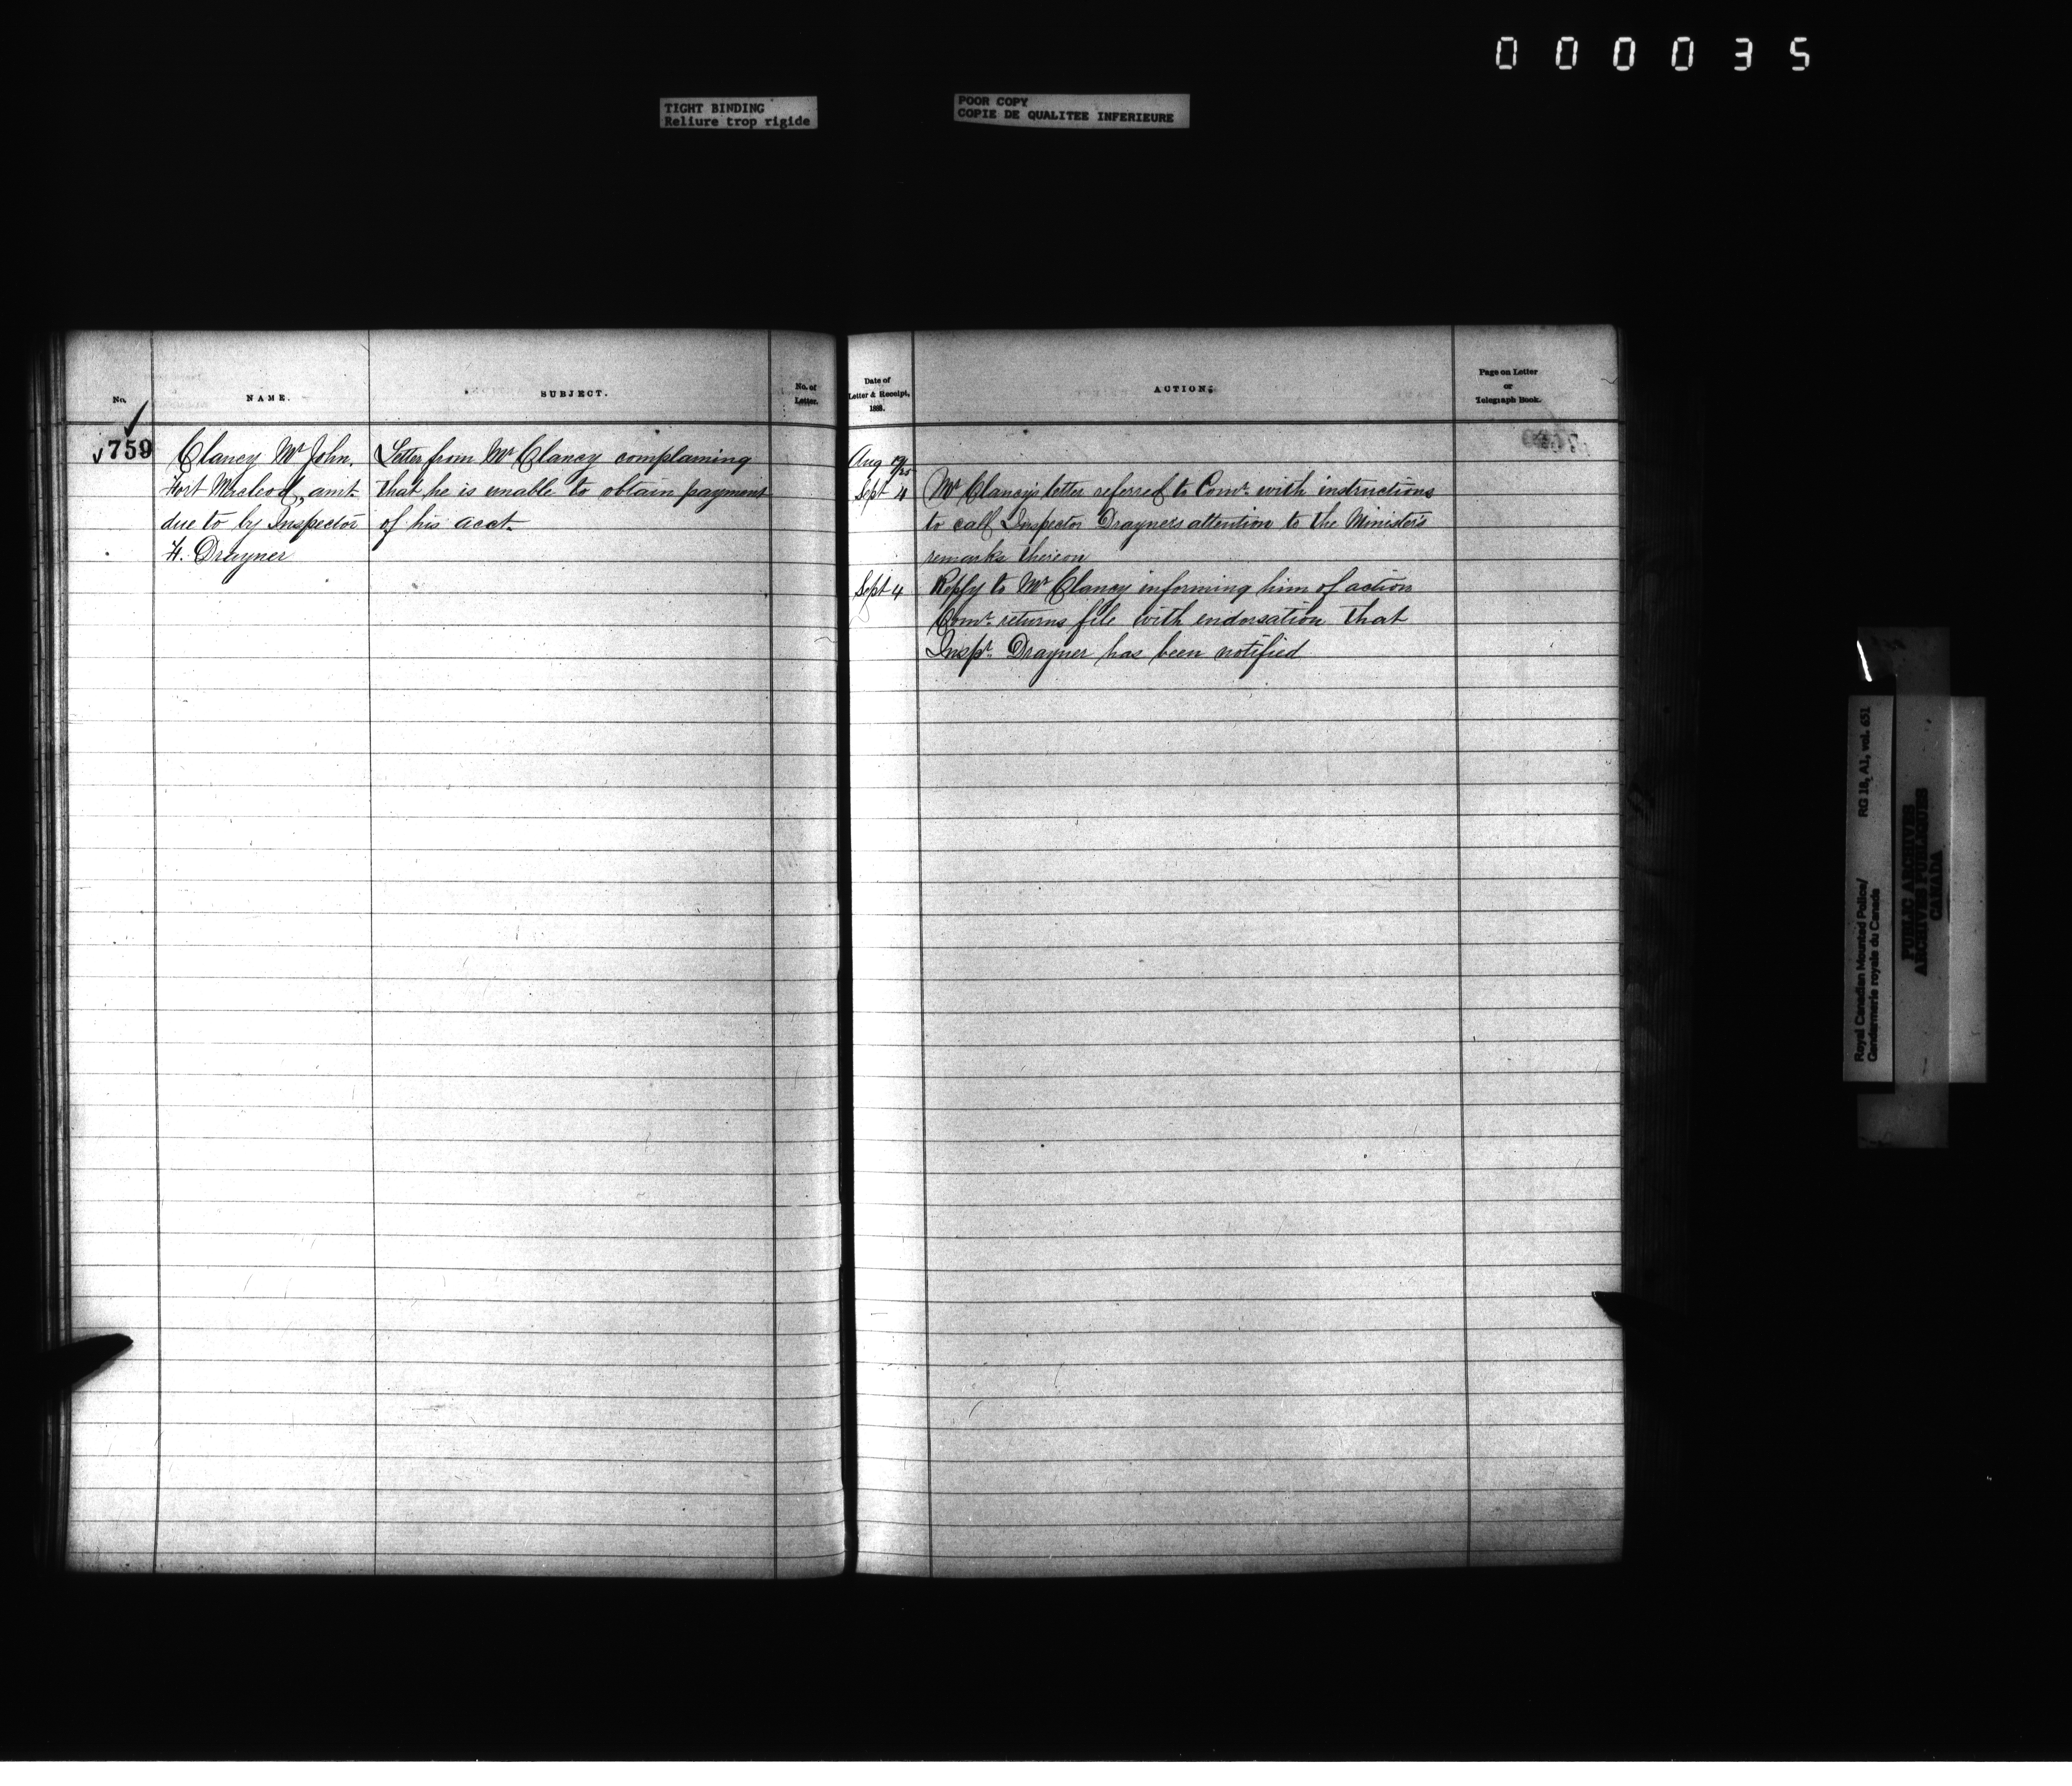 000035
TIGHT BINDING
Reliure trop rigide
POOR COPY
COPIE DE QUALITEE INFERIEURE
No.
NAME.
SUBJECT.
No. of
Letter.
759
Clancy Mr John.
Fort Macleod, amt.
due to by Inspector
F. Drayner
Letter from Mr Clancy complaining
that he is unable to obtain payment
of his acct.
Date of
Letter & Receipt,
188
ACTION.
Page on Letter
or
Telegraph Book.
Aug 19/25
Sept 4
Mr Clancy's letter referred to Comr. with instructions
to call Inspector Drayner's attention to the Minister's
remarks thereon
Sept 4
Reply to Mr Clancy informing him of action
Comr. returns file with endorsation that
Inspr. Drayner has been notified
Royal Canadian Mounted Police/
Gendarmerie royale du Canada
RG 18, A1, vol. 651
PUBLIC ARCHIVES
ARCHIVES PUBLIQUES
CANADA